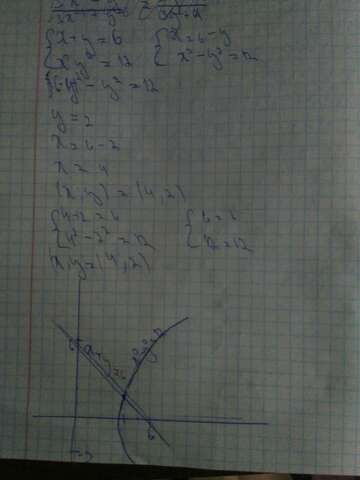 {x+y=6 {x=6-y
{x²-y²=12 {x²-y²=12
(6-y)²-y²=12
y=2
x=6-2
x=4
(x,y)=(4,2)
{4+2=6 {6=6
{4²-2²=12 {12=12
x,y=(4,2)
x+y=6
x²-y²=12
6